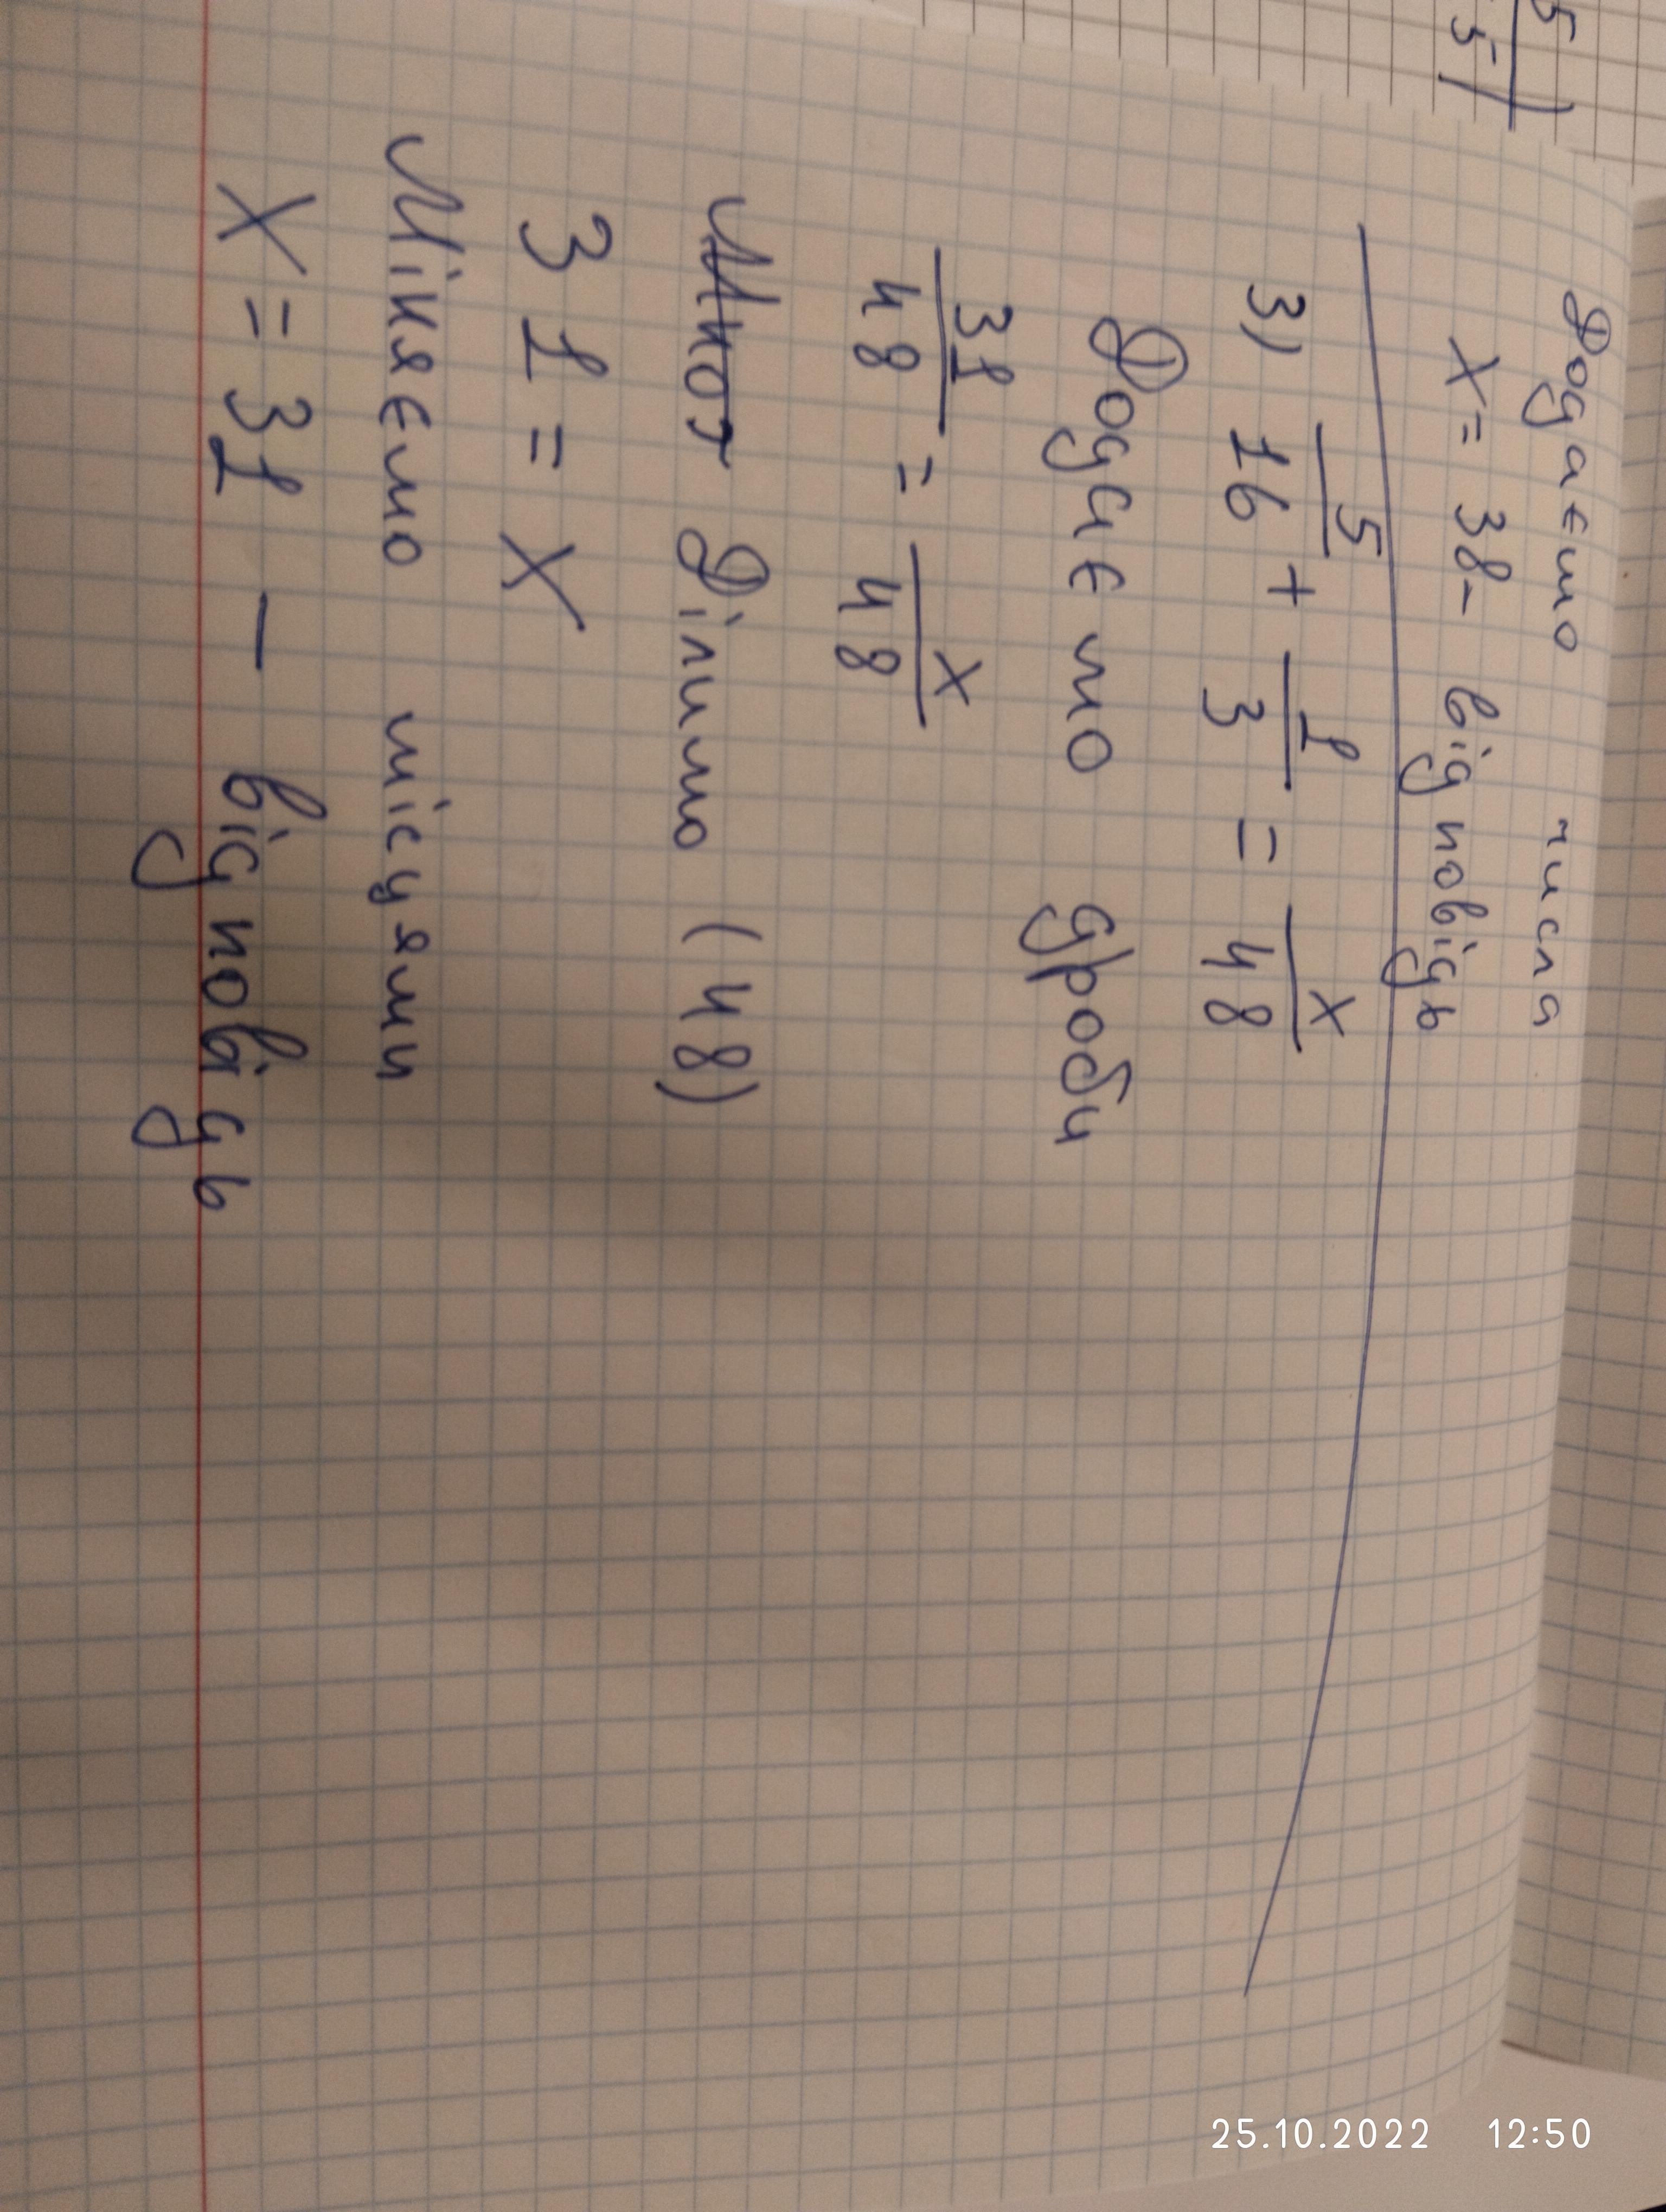 5
5)
Додаємо числа
x = 38 - відповідь
3) 5/16 + 1/3 = x/48
Додаємо дроби
31/48 = x/48
Мнот Ділимо (48)
31 = x
Міняємо місцями
x = 31 - відповідь
25.10.2022 12:50